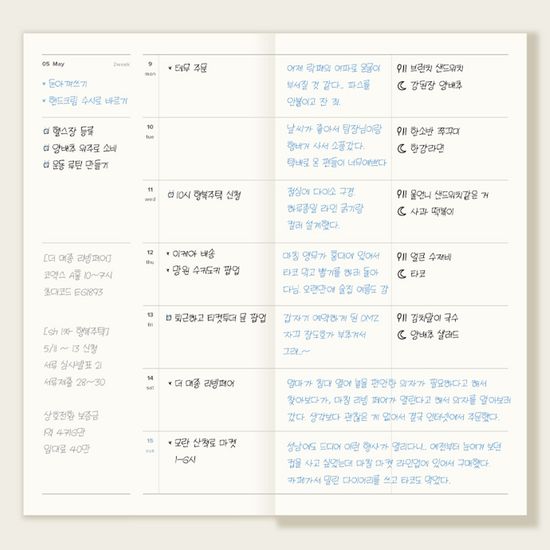 05 May
2week
• 돈아껴쓰기
• 핸드크림 수시로 바르기
헬스장 등록
양배추 위주로 소비
운동 루틴 만들기
[더 메종 리빙페어]
코엑스 A홀 10~7시
초대코드 EG1893
[sh 1차 행복주택]
5/11 ~ 13 신청
서류 심사발표 21
서류제출 28~30
상호전환 보증금
1억 476만
임대료 40만
9
mon
• 테무 주문
어제 락페의 여파로 온몸이
부서질 것 같다.. 파스를
안붙이고 잔 죄.
브런치 샌드위치
강된장 양배추
10
tue
날씨가 좋아서 팀장님이랑
햄버거 사서 소풍갔다.
택배로 온 펜들이 너무예쁘다
한소반 쭈꾸미
한강라면
11
wed
10시 행복주택 신청
점심에 다이소 구경.
하루종일 라인 굵기랑
컬러 설계했다.
울언니 샌드위치같은 거
사과 떡볶이
12
thu
• 이케아 배송
• 망원 수키도키 팝업
마침 영무가 홍대에 있어서
타코 먹고 빙기를 하러 돌아
다님. 오랜만에 옮집 여름도 감
얼큰 수제비
타코
13
fri
퇴근하고 티켓투더 문 팝업
갑자기 예약하게 된 DMZ
자꾸 장도호가 부추겨서
그래..~
김치말이 국수
양배추 샐러드
14
sat
• 더 메종 리빙페어
엄마가 침대 옆에 놓을 편안한 의자가 필요하다고 해서
찾아보다가, 마침 리빙 페어가 열린다고 해서 의자를 알아보러
갔다. 생각보다 괜찮은 게 없어서 결국 인터넷에서 주문했다.
15
sun
• 모란 산책로 마켓
1-6시
성남에도 드디어 이런 행사가 열리다니.. 예전부터 눈여겨 보던
컵을 사고 싶었는데 마침 마켓 라인업에 있어서 구매했다.
카페가서 밀린 다이어리를 쓰고 타코도 먹었다.